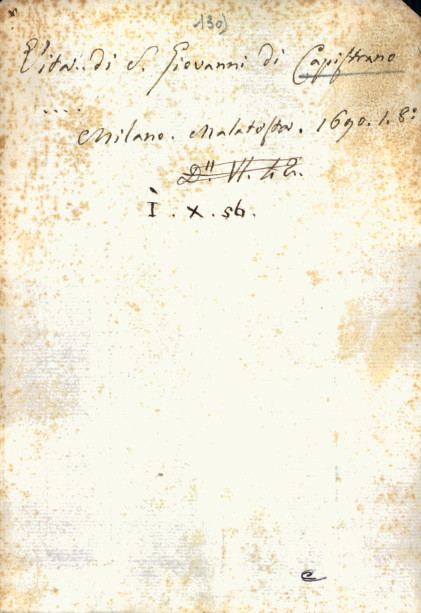 130)
Vita.. di S. Giovanni di Capistrano
....
Milano. Malatesta. 1690. 1. 8º
D.
I. X. sb.
e